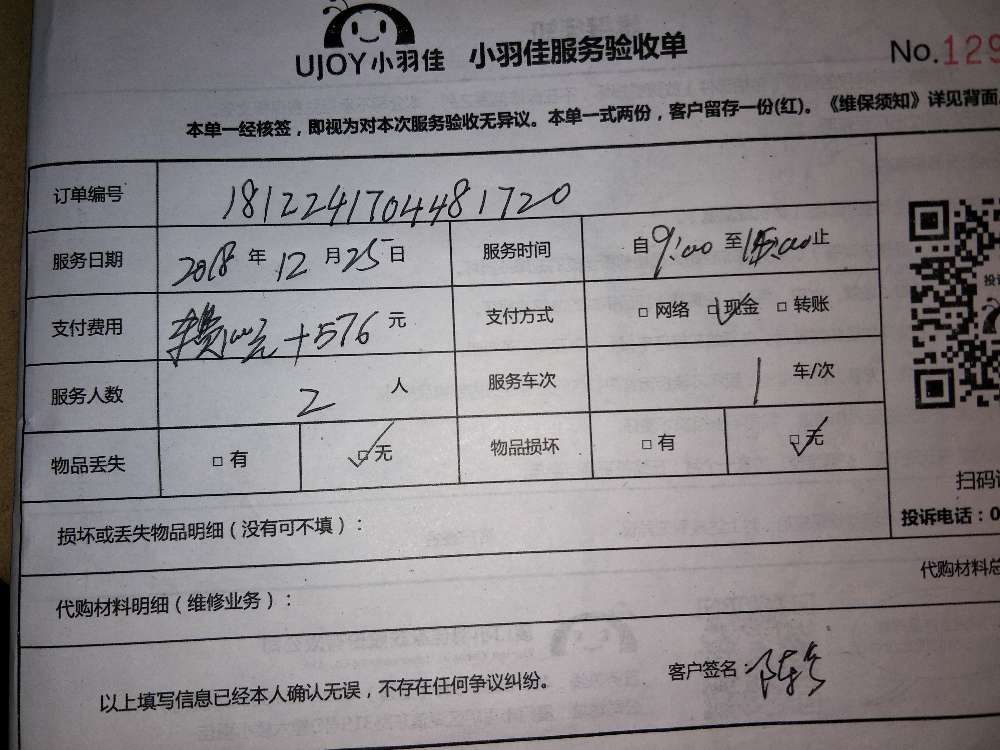 UJOY小羽佳 小羽佳服务验收单 No.129
本单一经核签，即视为对本次服务验收无异议。本单一式两份，客户留存一份(红)。《维保须知》详见背面。
订单编号 1812241704481720
服务日期 2018年12月25日 服务时间 自9:00至15:00止
支付费用 车费 元+576元 支付方式 □网络 □现金 □转账
服务人数 2人 服务车次 1车/次
物品丢失 □有 □无 物品损坏 □有 □无
扫码
投诉电话：0
损坏或丢失物品明细（没有可不填）：
代购材料总
代购材料明细（维修业务）：
以上填写信息已经本人确认无误，不存在任何争议纠纷。 客户签名：陈